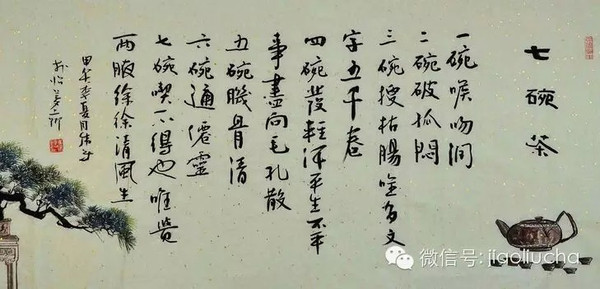 七碗茶
一碗喉吻潤
二碗破孤悶
三碗搜枯腸唯有文
字五千卷
四碗發輕汗平生不平
事盡向毛孔散
五碗肌骨清
六碗通僊靈
七碗喫不得也唯覺
兩腋徐徐清風生
甲午季夏月
微信号: jiaoliucha